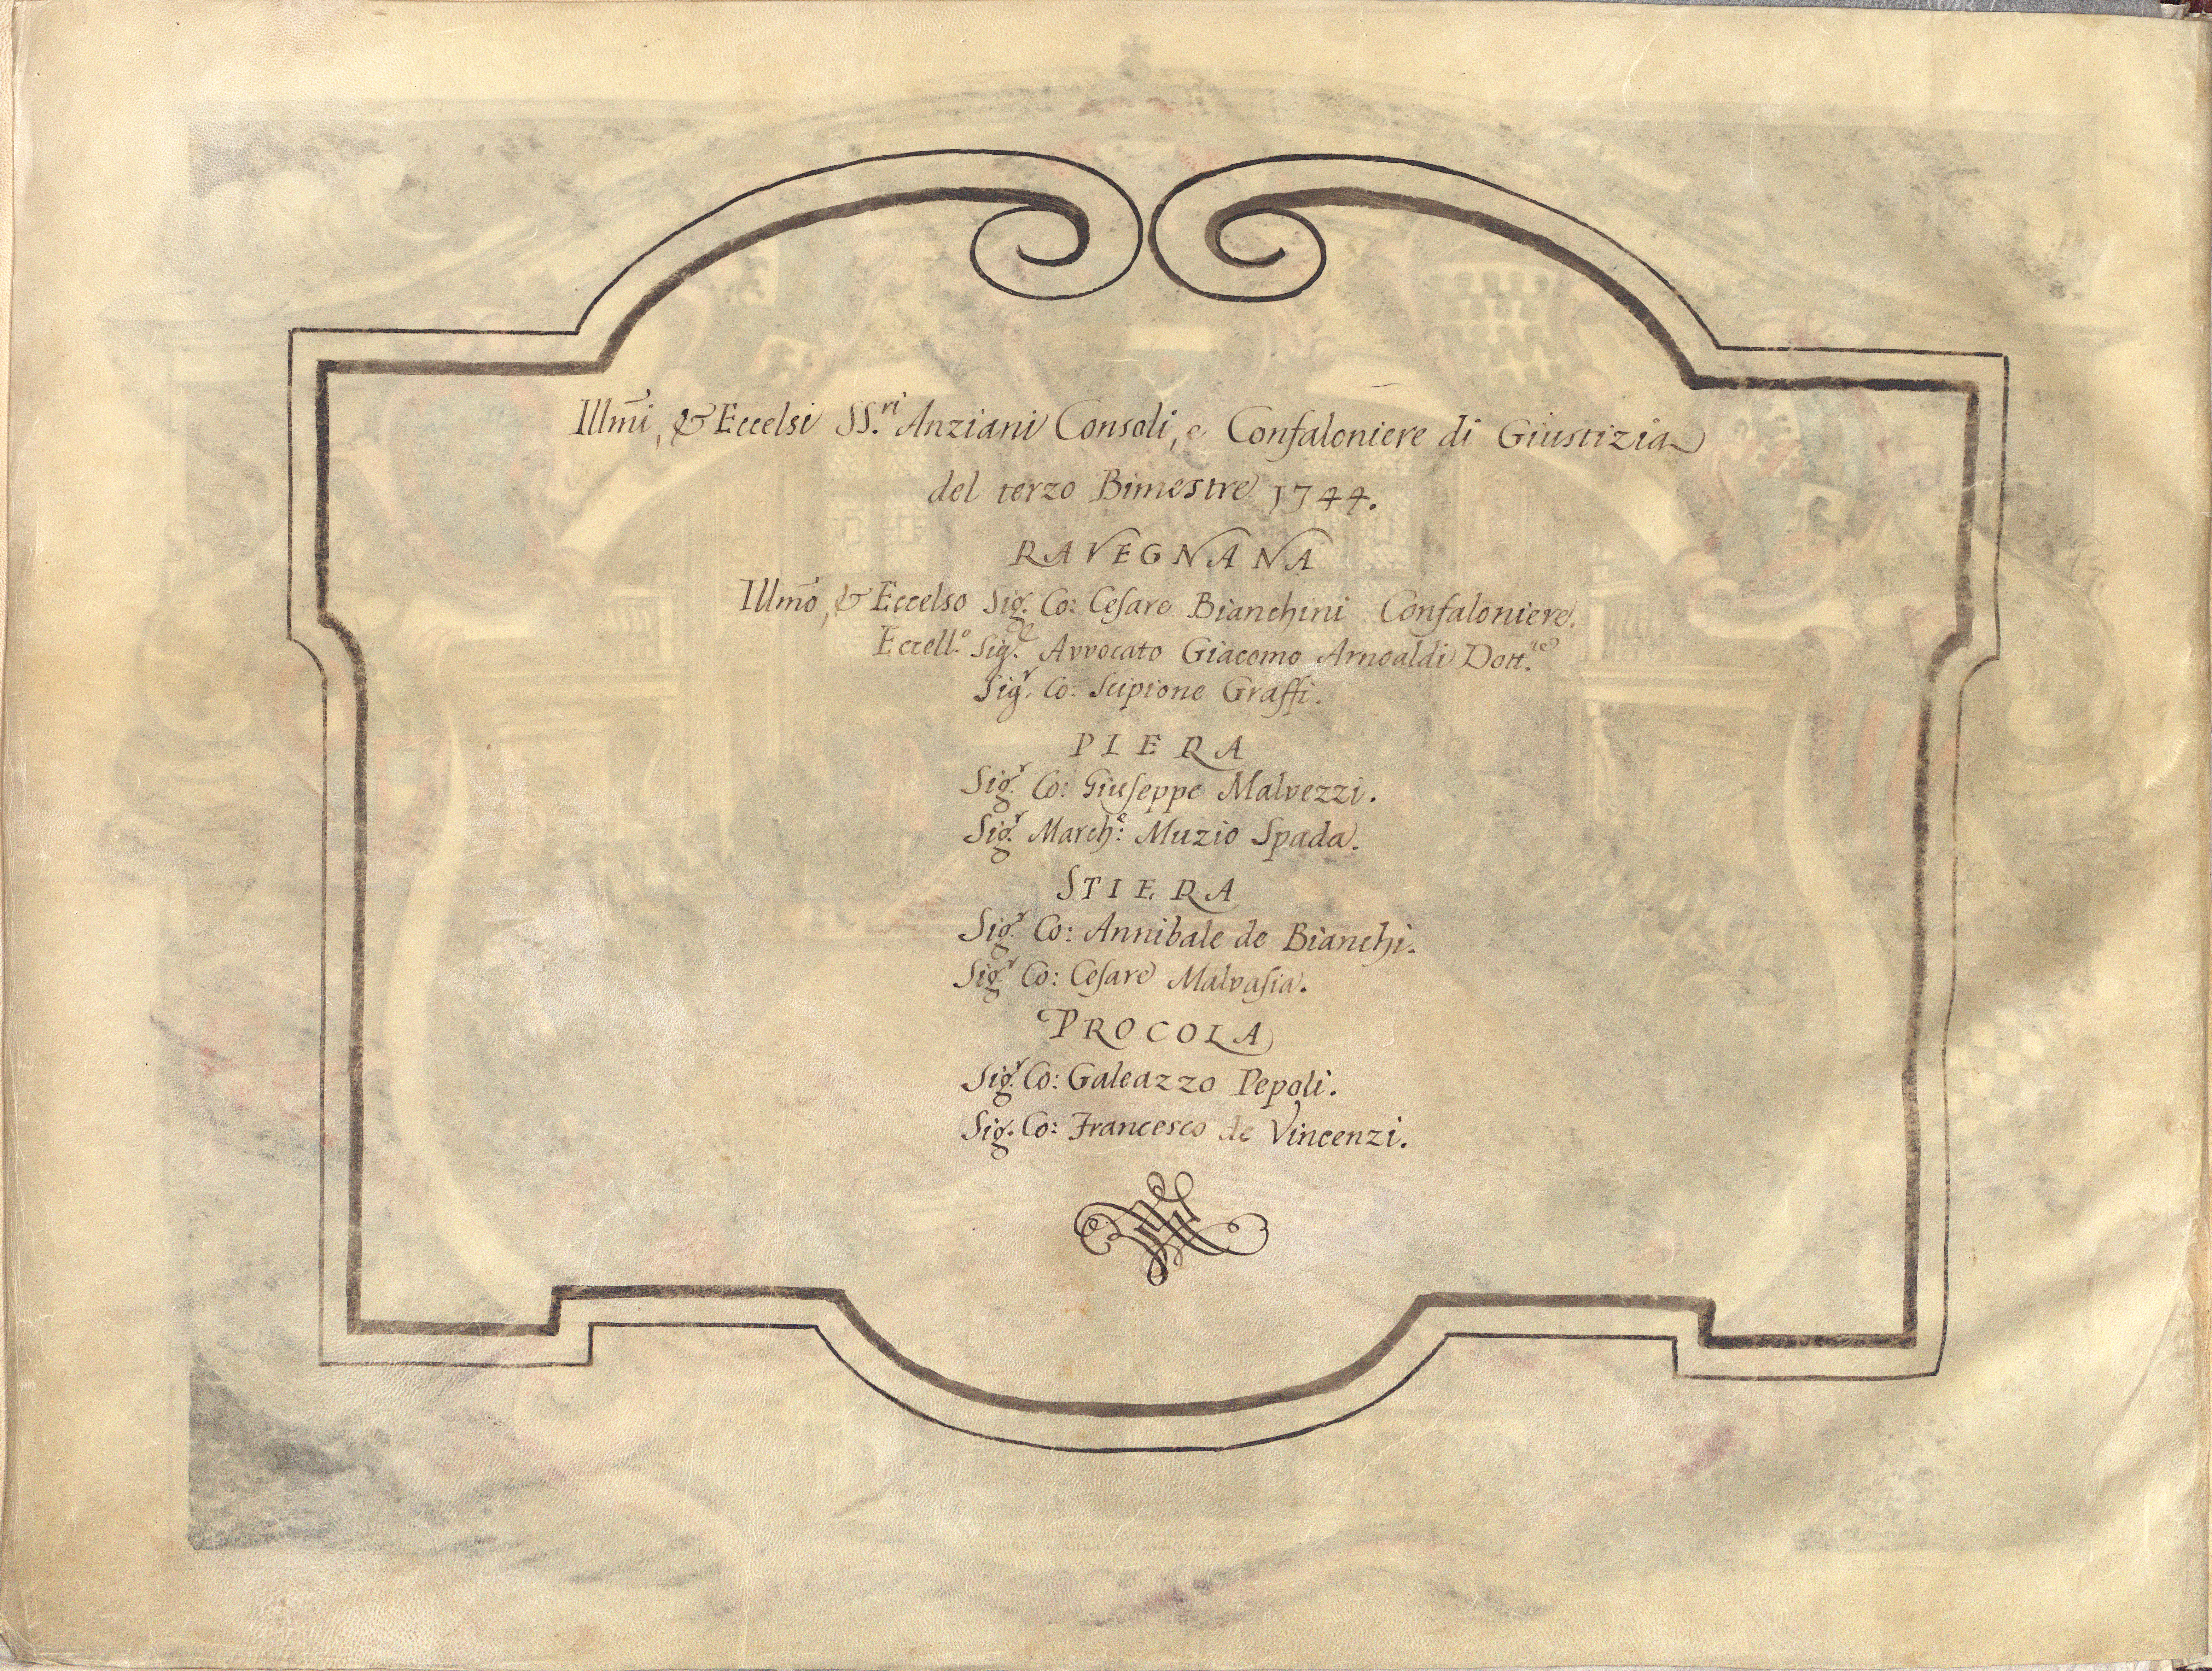 Illm̃i, & Eccelsi SS.ri Anziani Consoli, e Confaloniere di Giustizia
del terzo Bimestre 1744.
RAVEGNANA
Illm̃o, & Eccelso Sig.r Co: Cesare Bianchini Confaloniere.
Eccell.o Sig.r Avvocato Giacomo Arnoaldi Dott.re
Sig.r Co: Scipione Graffi.
PIERA
Sig.r Co: Giuseppe Malvezzi.
Sig.r March.e: Muzio Spada.
STIERA
Sig.r Co: Annibale de Bianchi.
Sig.r Co: Cesare Malvasia.
PROCOLA
Sig.r Co: Galeazzo Pepoli.
Sig. Co: Francesco de Vincenzi.